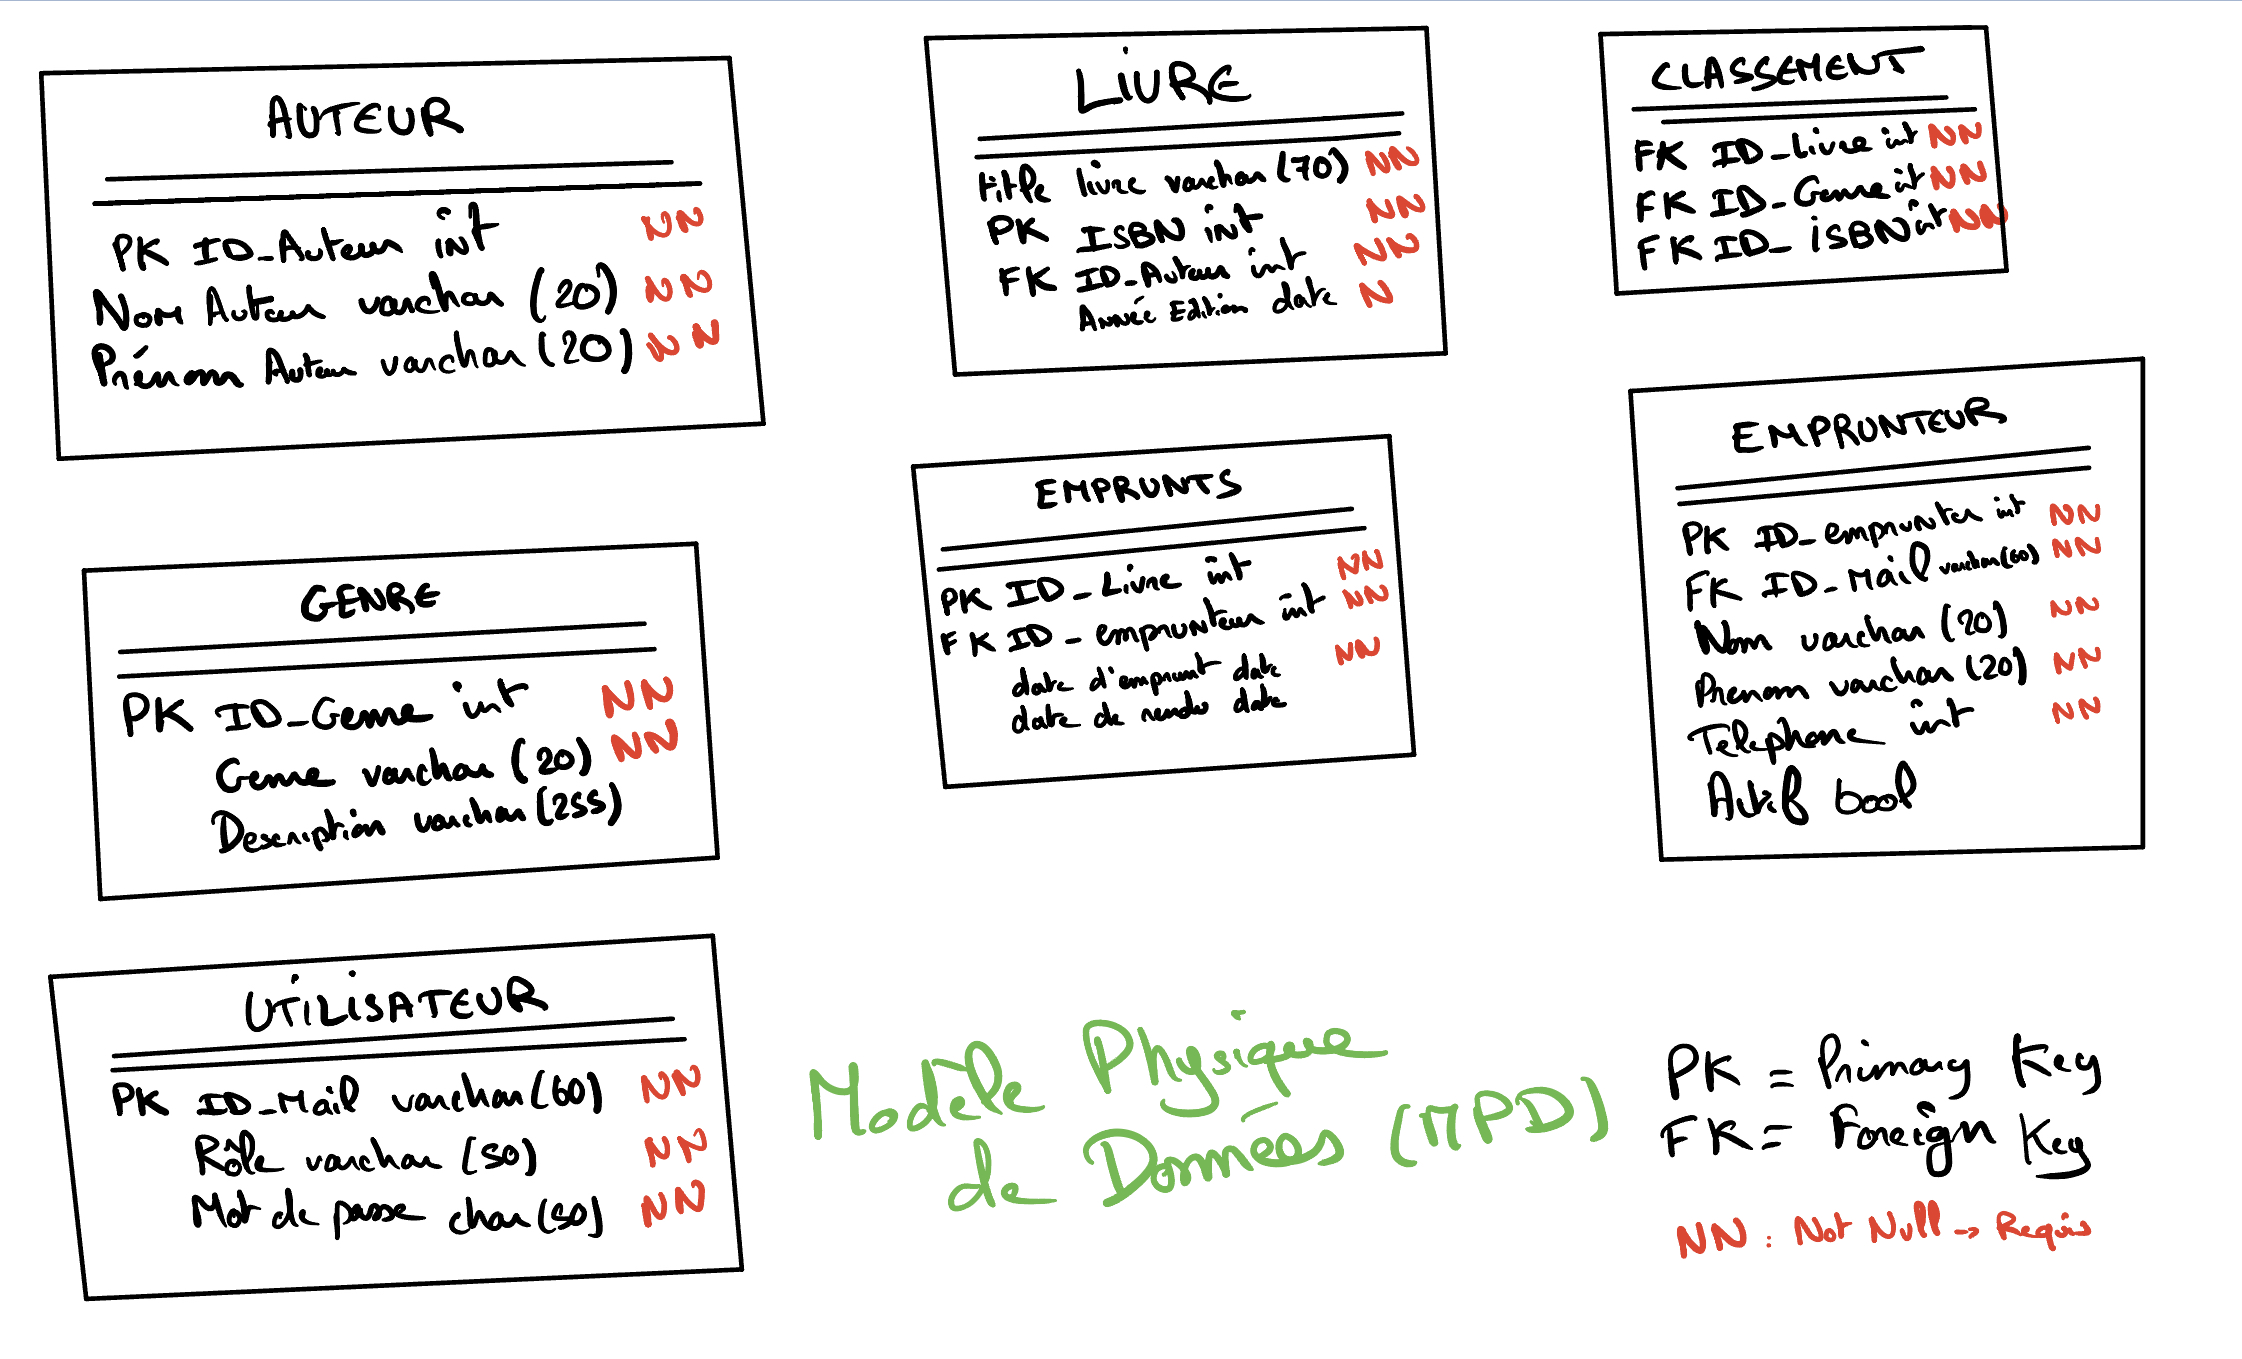 AUTEUR
PK ID_Auteur int NN
Nom Auteur varchar (20) NN
Prénom Auteur varchar (20) NN
LiVRE
title livre varchar (70) NN
PK ISBN int NN
FK ID_Auteur int NN
Année Edition date N
CLASSEMENT
FK ID_livre int NN
FK ID_Genre int NN
FK ID_iSBN int NN
GENRE
PK ID_Genre int NN
Genre varchar (20) NN
Description varchar (255)
EMPRUNTS
PK ID_Livre int NN
FK ID_emprunteur int NN
date d'emprunt date NN
date de rendu date
EMPRUNTEUR
PK ID_emprunteur int NN
FK ID_Mail varchar(60) NN
Nom varchar (20) NN
Prenom varchar (20) NN
Telephone int NN
Actif bool
UTiLiSATEUR
PK ID_Mail varchar (60) NN
Rôle varchar (50) NN
Mot de passe char (50) NN
Modèle Physique
de Données (MPD)
PK = Primary Key
FK = Foreign Key
NN : Not Null → Requis